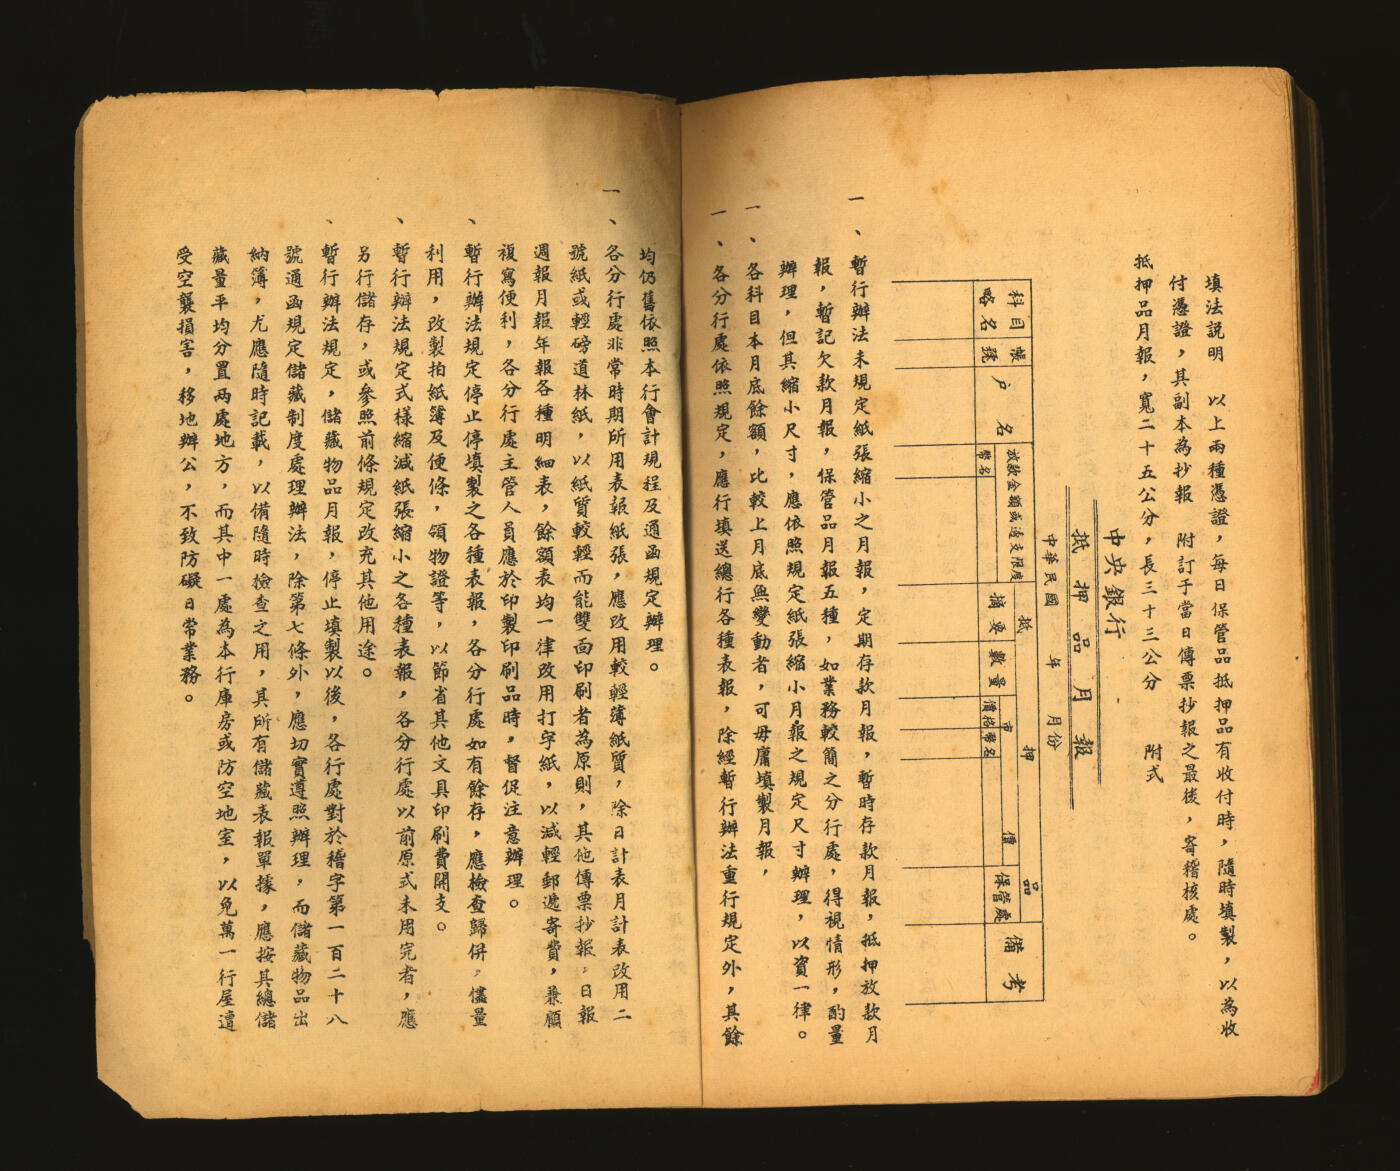 填法説明　以上兩種憑證，每日保管品抵押品有收付時，隨時填製，以為收
付憑證，其副本為抄報　附訂于當日傳票抄報之最後，寄稽核處。
抵押品月報，寬二十五公分，長三十三公分　附式
中央銀行
抵押品月報
中華民國　年　月份
科目略名
帳號
户名
放款金額或透支限度
幣名
抵押品
摘要
數量
市價
價格幣名
保管處
備考
一、暫行辦法未規定紙張縮小之月報，定期存款月報，暫時存款月報，抵押放款月
報，暫記欠款月報，保管品月報五種，如業務較簡之分行處，得視情形，酌量
辦理，但其縮小尺寸，應依照規定紙張縮小月報之規定尺寸辦理，以資一律。
一、各科目本月底餘額，比較上月底無變動者，可毋庸填製月報，
一、各分行處依照規定，應行填送總行各種表報，除經暫行辦法重行規定外，其餘
均仍舊依照本行會計規程及通函規定辦理。
一、各分行處非常時期所用表報紙張，應改用較輕薄紙質，除日計表月計表改用二
號紙或輕磅道林紙，以紙質較輕而能雙面印刷者為原則，其他傳票抄報，日報
週報月報年報各種明細表，餘額表均一律改用打字紙，以減輕郵遞寄費，兼顧
複寫便利，各分行處主管人員應於印製印刷品時，督促注意辦理。
、暫行辦法規定停止停填製之各種表報，各分行處如有餘存，應檢查歸併，儘量
利用，改製拍紙簿及便條，領物證等，以節省其他文具印刷費開支。
、暫行辦法規定式樣縮減紙張縮小之各種表報，各分行處以前原式未用完者，應
另行儲存，或參照前條規定改充其他用途。
、暫行辦法規定，儲藏物品月報，停止填製以後，各行處對於稽字第一百二十八
號通函規定儲藏制度處理辦法，除第七條外，應切實遵照辦理，而儲藏物品出
納簿，尤應隨時記載，以備隨時檢查之用，其所有儲藏表報單據，應按其總儲
藏量平均分置兩處地方，而其中一處為本行庫房或防空地室，以免萬一行屋遭
受空襲損害，移地辦公，不致防礙日常業務。